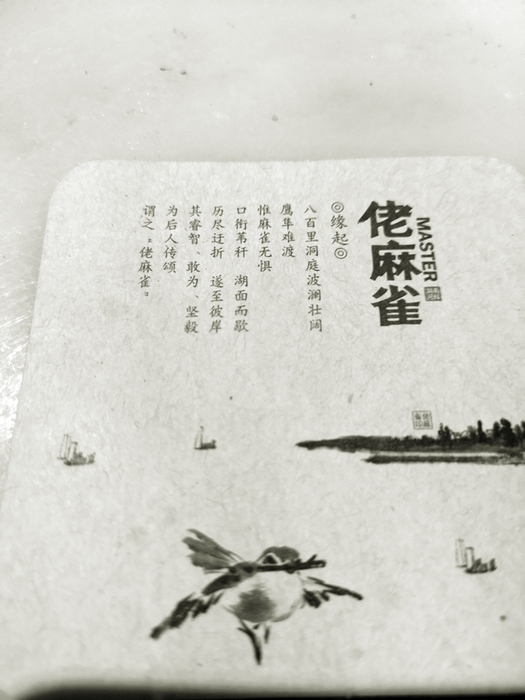 佬麻雀
MASTER
◎缘起◎
八百里洞庭波澜壮阔
鹰隼难渡
惟麻雀无惧
口衔苇秆 湖面而歇
历尽迂折 遂至彼岸
其睿智、敢为、坚毅
为后人传颂
谓之:佬麻雀。